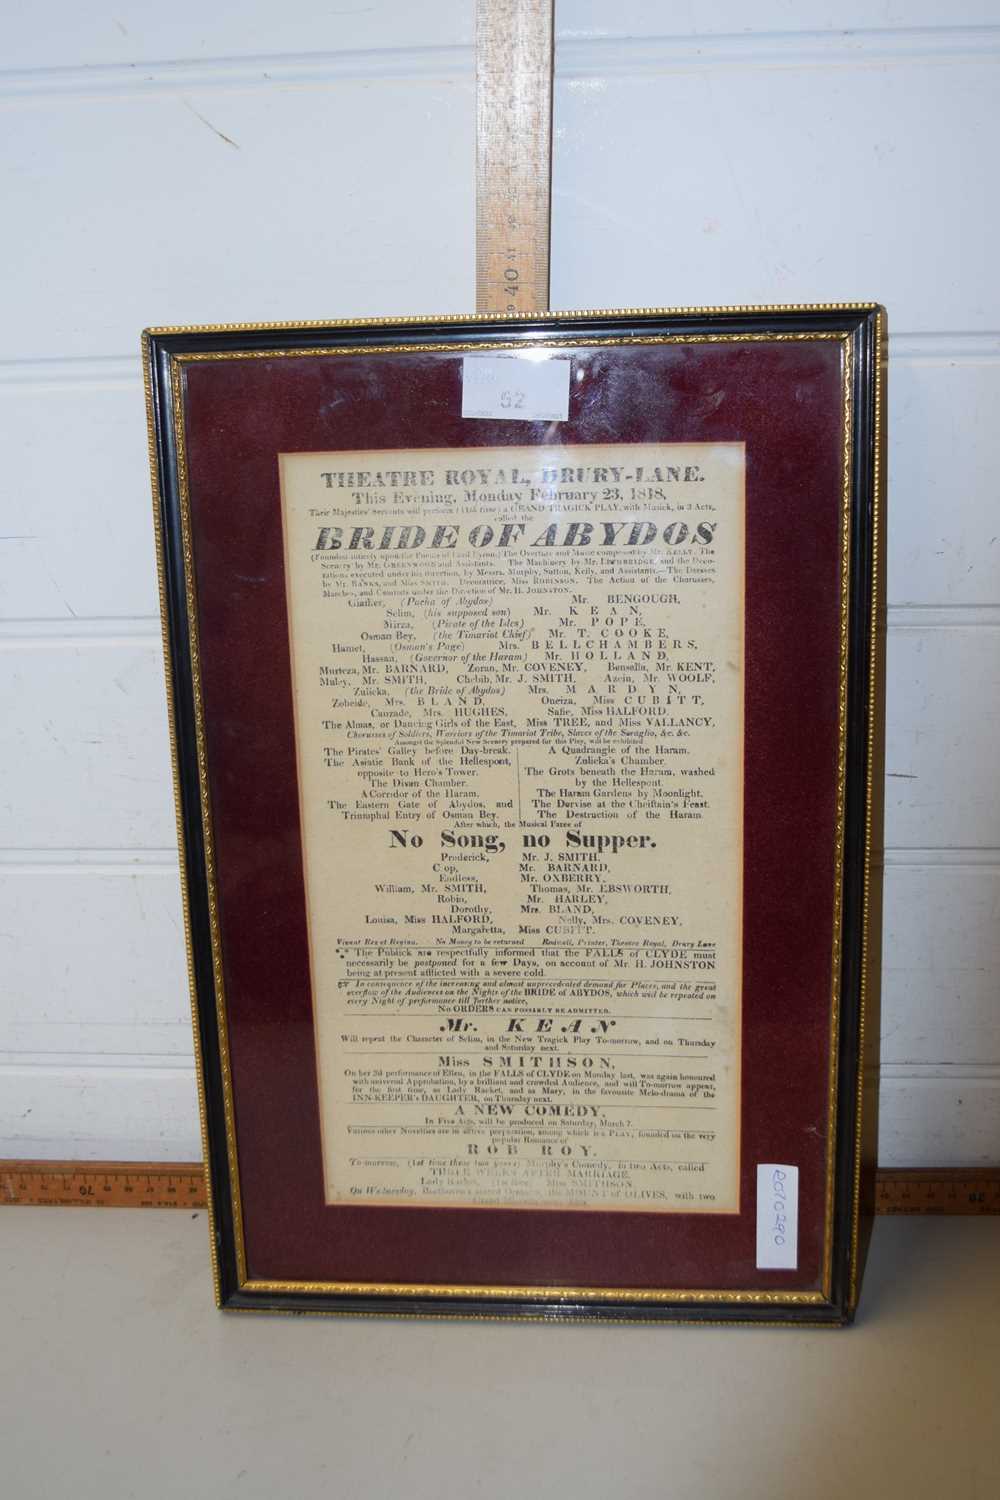 40
52
THEATRE ROYAL, DRURY-LANE.
This Evening, Monday February 23, 1818,
Their Majesties' Servants will perform (11th time) a GRAND TRAGICK PLAY, with Musick, in 3 Acts,
called the
BRIDE OF ABYDOS
(Founded entirely upon the Poems of Lord Byron.) The Overture and Music composed by Mr. KELLY. The
Scenery by Mr. GREENWOOD and Assistants. The Machinery by Mr. LETHBRIDGE, and the Deco-
rations executed under his direction, by Messrs. Murphy, Sutton, Kelly, and Assistants.—The Dresses
by Mr. BANKS, and Miss SMITH. Decoratrice, Miss ROBINSON. The Action of the Chorusses,
Marches, and Combats under the Direction of Mr. H. JOHNSTON.
Giaffier, (Pacha of Abydos) Mr. BENGOUGH,
Selim, (his supposed son) Mr. KEAN,
Mirza, (Pirate of the Isles) Mr. POPE,
Osman Bey, (the Timariot Chief) Mr. T. COOKE,
Hamet, (Osman's Page) Mrs. BELLCHAMBERS,
Hassan, (Governor of the Haram) Mr. HOLLAND,
Murteza, Mr. BARNARD, Zoran, Mr. COVENEY, Bensella, Mr. KENT,
Muley, Mr. SMITH, Chebib, Mr. J. SMITH, Azein, Mr. WOOLF,
Zulieka, (the Bride of Abydos) Mrs. MARDYN,
Zobeide, Mrs. BLAND, Oneiza, Miss CUBITT,
Canzade, Mrs. HUGHES, Safie, Miss HALFORD.
The Almas, or Dancing Girls of the East, Miss TREE, and Miss VALLANCY,
Chorusses of Soldiers, Warriors of the Timariot Tribe, Slaves of the Seraglio, &c. &c.
Amongst the Splendid New Scenery prepared for this Play, will be exhibited
The Pirates' Galley before Day-break.
The Asiatic Bank of the Hellespont,
opposite to Hero's Tower.
The Divan Chamber.
A Corridor of the Haram.
The Eastern Gate of Abydos, and
Triumphal Entry of Osman Bey.
A Quadrangle of the Haram.
Zulieka's Chamber.
The Grots beneath the Haram, washed
by the Hellespont.
The Haram Gardens by Moonlight.
The Dervise at the Cheiftain's Feast.
The Destruction of the Haram.
After which, the Musical Farce of
No Song, no Supper.
Frederick, Mr. J. SMITH,
Crop, Mr. BARNARD,
Endless, Mr. OXBERRY,
William, Mr. SMITH, Thomas, Mr. EBSWORTH,
Robin, Mr. HARLEY,
Dorothy, Mrs. BLAND,
Louisa, Miss HALFORD, Nelly, Mrs. COVENEY,
Margaretta, Miss CUBITT.
Vivant Rex et Regina. No Money to be returned Rodwell, Printer, Theatre Royal, Drury Lane
The Publick are respectfully informed that the FALLS of CLYDE must
necessarily be postponed for a few Days, on account of Mr. H. JOHNSTON
being at present afflicted with a severe cold.
☞ In consequence of the increasing and almost unprecedented demand for Places, and the great
overflow of the Audiences on the Nights of the BRIDE of ABYDOS, which will be repeated on
every Night of performance till further notice,
No ORDERS CAN POSSIBLY BE ADMITTED.
Mr. KEAN
Will repeat the Character of Selim, in the New Tragick Play To-morrow, and on Thursday
and Saturday next.
Miss SMITHSON,
On her 2d performance of Ellen, in the FALLS of CLYDE on Monday last, was again honoured
with universal Approbation, by a brilliant and crowded Audience, and will To-morrow appear,
for the first time, as Lady Racket, and as Mary, in the favourite Melo-drama of the
INN-KEEPER's DAUGHTER, on Thursday next.
A NEW COMEDY,
In Five Acts, will be produced on Saturday, March 7.
Various other Novelties are in active preparation, among which is a PLAY, founded on the very
popular Romance of
ROB ROY.
To-morrow, (1st time these two years) Murphy's Comedy, in two Acts, called
THREE WEEKS AFTER MARRIAGE.
Lady Racket, (1st time) Miss SMITHSON.
On Wednesday, Beethoven's sacred Oratorio, the MOUNT of OLIVES, with two
R070290
70